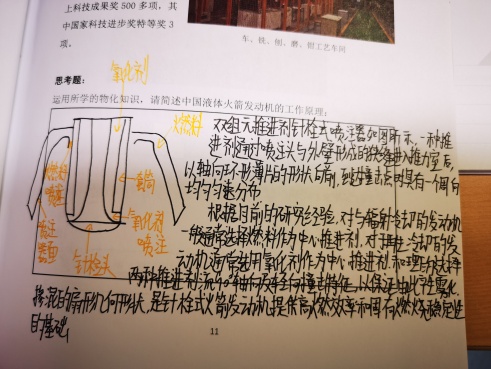 上科技成果奖 500 多项，其
中国家科技进步奖特等奖 3
项。
车、铣、刨、磨、钳工艺车间
思考题：
运用所学的物化知识，请简述中国液体火箭发动机的工作原理：
氧化剂
燃料
燃料
喷注
喷注
壁面
套筒
氧化剂
喷注
针栓头
双组元推进剂针栓式喷注器如图所示，一种推
进剂通过喷注头与外壁形成的狭缝进入推力室后，
以轴向环形薄片的形状向前，到达撞击点时具有一个周向
均匀的速分布
根据目前的研究经验，对与辐射冷却的发动机
一般通常选择燃料作为中心推进剂，对于再生冷却的发
动机通常选用氧化剂作为中心推进剂，和理
两种推进剂
掺混的扇形几何形状，是针栓式火箭发动机提供高燃效率和固有燃烧稳定性
的基础
11